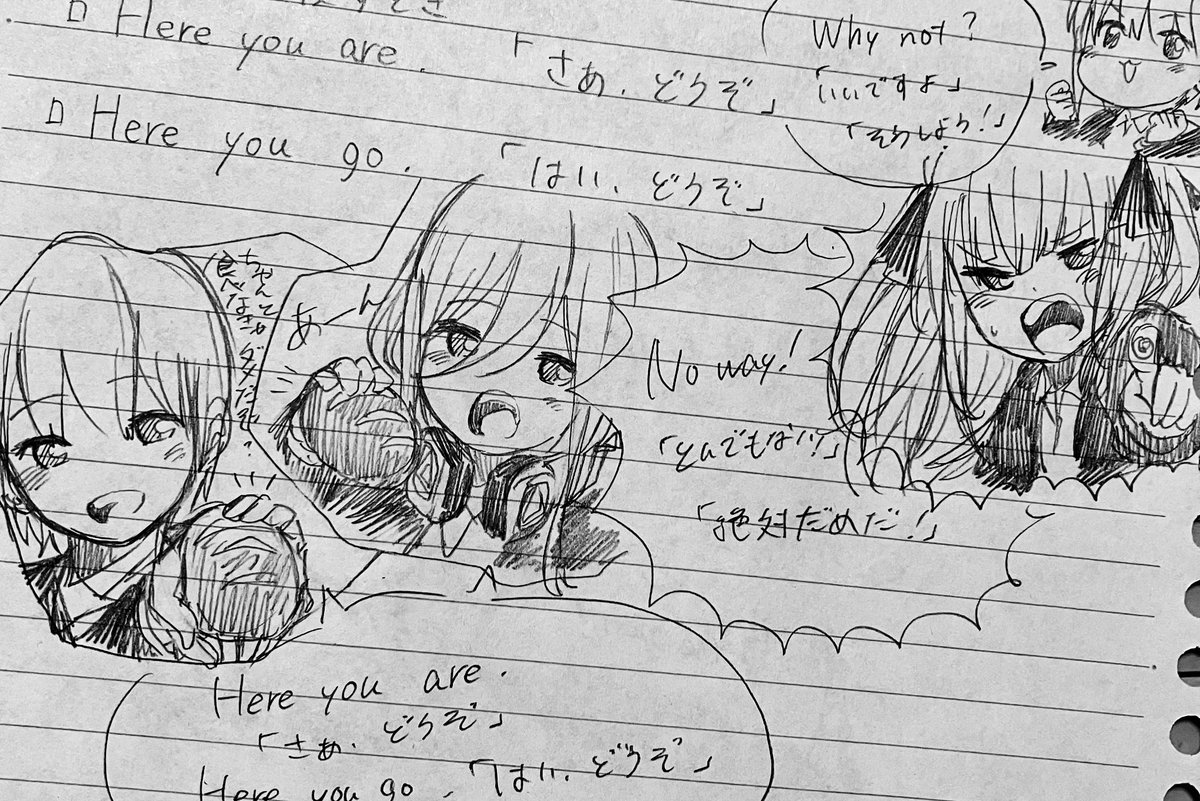 □ Here you are. 「さあ、どうぞ」
□ Here you go. 「はい、どうぞ」
Why not?
「いいですよ」
「そうしよう!」
ちゃんと
食べなきゃ
ダメだぞ?
あーん
No way!
「とんでもない!」
「絶対だめだ!」
Here you are.
「さあ、どうぞ」
Here you go. 「はい、どうぞ」